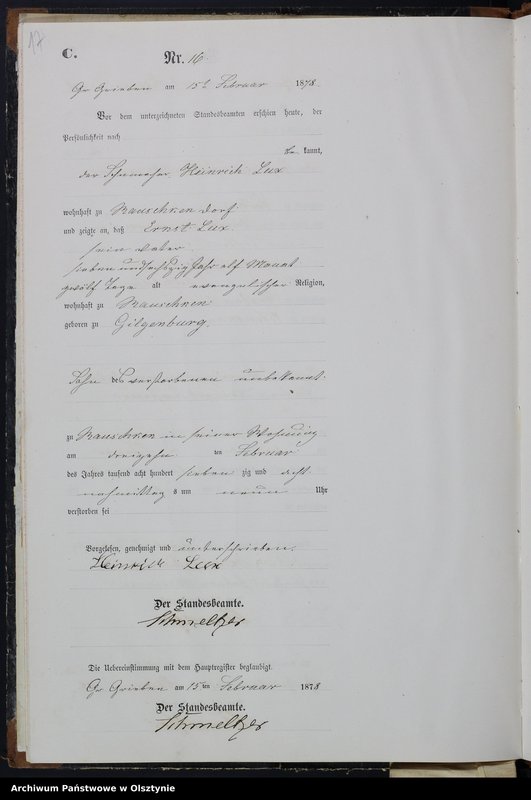 17
C.
Nr. 16
Gr Grieben am 15t Februar 1878
Vor dem unterzeichneten Standesbeamten erschien heute, der
Persönlichkeit nach
be kannt,
der Schumacher Heinrich Lux
wohnhaft zu Rauschken dorf
und zeigte an, daß Ernst Lux
sein Vater
sieben und sechszig Jahr elf Monat
zwölf Tage alt evangelischer Religion,
wohnhaft zu Rauschken
geboren zu Gilgenburg
Sohn des verstorbenen unbekannt.
zu Rauschken in seiner Wohnung
am dreizehn ten Februar
des Jahres tausend acht hundert sieben zig und acht
nachmittag s um neun Uhr
verstorben sei
Vorgelesen, genehmigt und unterschrieben.
Heinrich Lux
Der Standesbeamte.
Schmeltzer
Die Uebereinstimmung mit dem Hauptregister beglaubigt.
Gr Grieben am 15ten Februar 1878
Der Standesbeamte.
Schmeltzer
Archiwum Państwowe w Olsztynie